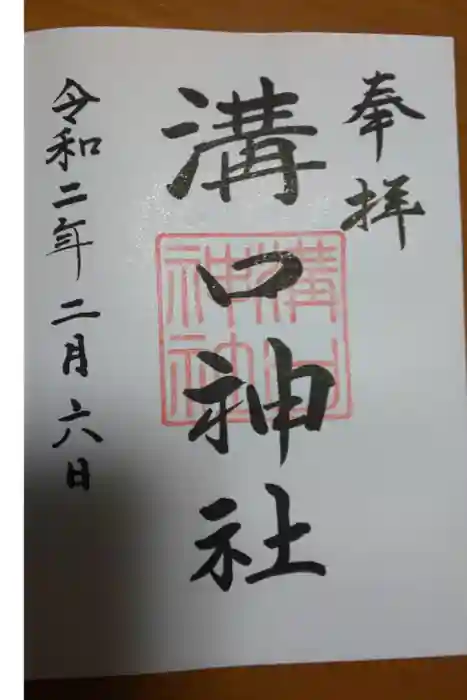 奉拝
溝口神社
溝口
神社
令和二年二月六日